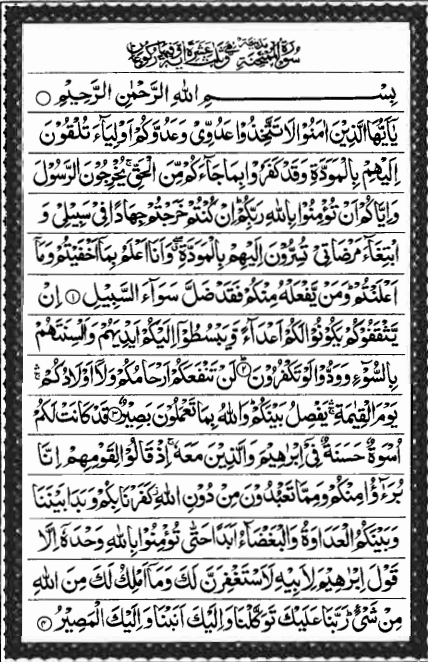 سُورَةُ الْمُمْتَحِنَةِ مَدَنِيَّةٌ وَهِيَ ثَلٰثَ عَشْرَةَ اٰيَةً وَّفِيْهَا رُكُوْعَانِ
بِسْمِ اللهِ الرَّحْمٰنِ الرَّحِيْمِ ○
يٰۤاَيُّهَا الَّذِيْنَ اٰمَنُوْا لَا تَتَّخِذُوْا عَدُوِّيْ وَعَدُوَّكُمْ اَوْلِيَآءَ تُلْقُوْنَ
اِلَيْهِمْ بِالْمَوَدَّةِ وَقَدْ كَفَرُوْا بِمَا جَآءَكُمْ مِّنَ الْحَقِّ ۚ يُخْرِجُوْنَ الرَّسُوْلَ
وَاِيَّاكُمْ اَنْ تُؤْمِنُوْا بِاللهِ رَبِّكُمْ ؕ اِنْ كُنْتُمْ خَرَجْتُمْ جِهَادًا فِيْ سَبِيْلِيْ وَ
ابْتِغَآءَ مَرْضَاتِيْ تُسِرُّوْنَ اِلَيْهِمْ بِالْمَوَدَّةِ ۖ وَاَنَا اَعْلَمُ بِمَاۤ اَخْفَيْتُمْ وَمَاۤ
اَعْلَنْتُمْ ؕ وَمَنْ يَّفْعَلْهُ مِنْكُمْ فَقَدْ ضَلَّ سَوَآءَ السَّبِيْلِ ۝۱ اِنْ
يَّثْقَفُوْكُمْ يَكُوْنُوْا لَكُمْ اَعْدَآءً وَّيَبْسُطُوْۤا اِلَيْكُمْ اَيْدِيَهُمْ وَاَلْسِنَتَهُمْ
بِالسُّوْٓءِ وَوَدُّوْا لَوْ تَكْفُرُوْنَ ۝۲ لَنْ تَنْفَعَكُمْ اَرْحَامُكُمْ وَلَاۤ اَوْلَادُكُمْ ۚ
يَوْمَ الْقِيٰمَةِ ۚ يَفْصِلُ بَيْنَكُمْ ؕ وَاللهُ بِمَا تَعْمَلُوْنَ بَصِيْرٌ ۝۳ قَدْ كَانَتْ لَكُمْ
اُسْوَةٌ حَسَنَةٌ فِيْۤ اِبْرٰهِيْمَ وَالَّذِيْنَ مَعَهٗ ۚ اِذْ قَالُوْا لِقَوْمِهِمْ اِنَّا
بُرَءٰٓؤُا مِنْكُمْ وَمِمَّا تَعْبُدُوْنَ مِنْ دُوْنِ اللهِ ۡ كَفَرْنَا بِكُمْ وَبَدَا بَيْنَنَا
وَبَيْنَكُمُ الْعَدَاوَةُ وَالْبَغْضَآءُ اَبَدًا حَتّٰى تُؤْمِنُوْا بِاللهِ وَحْدَهٗۤ اِلَّا
قَوْلَ اِبْرٰهِيْمَ لِاَبِيْهِ لَاَسْتَغْفِرَنَّ لَكَ وَمَاۤ اَمْلِكُ لَكَ مِنَ اللهِ
مِنْ شَيْءٍ ؕ رَبَّنَا عَلَيْكَ تَوَكَّلْنَا وَاِلَيْكَ اَنَبْنَا وَاِلَيْكَ الْمَصِيْرُ ۝۴